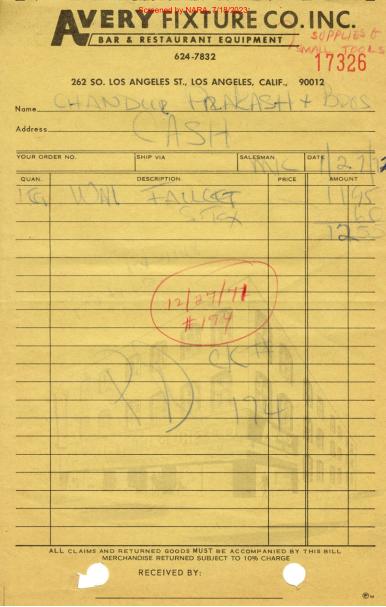 Screened by NARA, 7/18/2023
AVERY FIXTURE CO. INC.
BAR & RESTAURANT EQUIPMENT
SUPPLIES &
SMALL TOOLS
624-7832
17326
262 SO. LOS ANGELES ST., LOS ANGELES, CALIF., 90012
Name CHANDLER PRAKASH + BROS
Address CASH
YOUR ORDER NO. SHIP VIA SALESMAN DATE
QUAN. DESCRIPTION PRICE AMOUNT
FAUCET 11 95
S. TAX 60
12 55
12/27/71
#174
CK
PD 174
ALL CLAIMS AND RETURNED GOODS MUST BE ACCOMPANIED BY THIS BILL
MERCHANDISE RETURNED SUBJECT TO 10% CHARGE
RECEIVED BY: